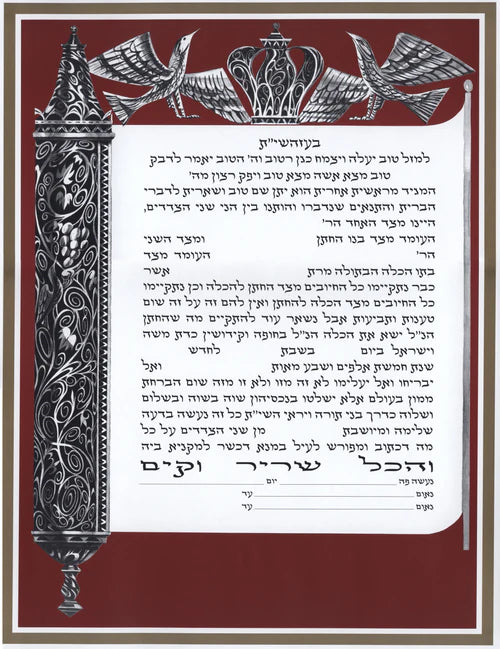 בעזהשי״ת
למזל טוב יעלה ויצמח כגן רטוב וה׳ הטוב יאמר לדבק
טוב מצא אשה מצא טוב ויפק רצון מה׳
המגיד מראשית אחרית הוא יתן שם טוב ושארית לדברי
הברית והתנאים שנדברו והותנו בין הני שני הצדדים,
היינו מצד האחד הר׳
העומד מצד בנו החתן ומצד השני
הר׳ העומד מצד
בתו הכלה הבתולה מרת אשר
כבר נתקיימו כל החיובים מצד החתן להכלה וכן נתקיימו
כל החיובים מצד הכלה להחתן ואין להם זה על זה שום
טענות ותביעות אבל נשאר עוד להתקיים מה שהחתן
הנ״ל ישא את הכלה הנ״ל בחופה וקידושין כדת משה
וישראל ביום בשבת לחדש
שנת חמשת אלפים ושבע מאות ואל
יבריחו ואל יעלימו לא זה מזו ולא זו מזה שום הברחת
ממון בעולם אלא ישלטו בנכסיהון שוה בשוה ובשלום
ושלוה כדרך בני תורה ויראי השי״ת כל זה נעשה בדעה
שלימה ומיושבת מן שני הצדדים על כל
מה דכתוב ומפורש לעיל במנא דכשר למקניא ביה
והכל שריר וקים
נעשה פה: יום
נאום עד
נאום עד